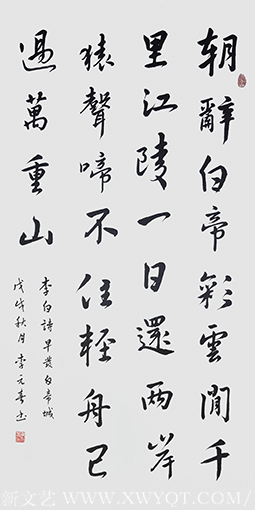 朝辭白帝彩雲間千
里江陵一日還兩岸
猿聲啼不住輕舟已
過萬重山
李白詩早發白帝城
戊戌秋月李元
新文艺 WWW.XWYQT.COM/